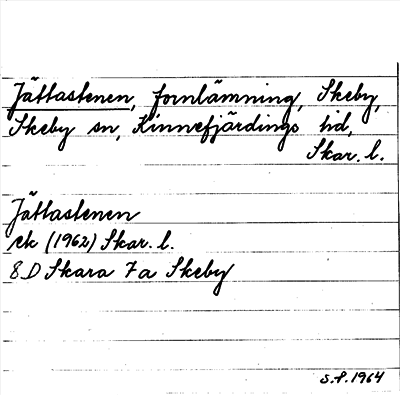 Jättastenen, fornlämning, Skeby,
Skeby sn, Kinnefjärdings hd,
Skar. l.
Jättastenen
ek (1962) Skar. l.
8 D Skara 7a Skeby
S.P. 1964